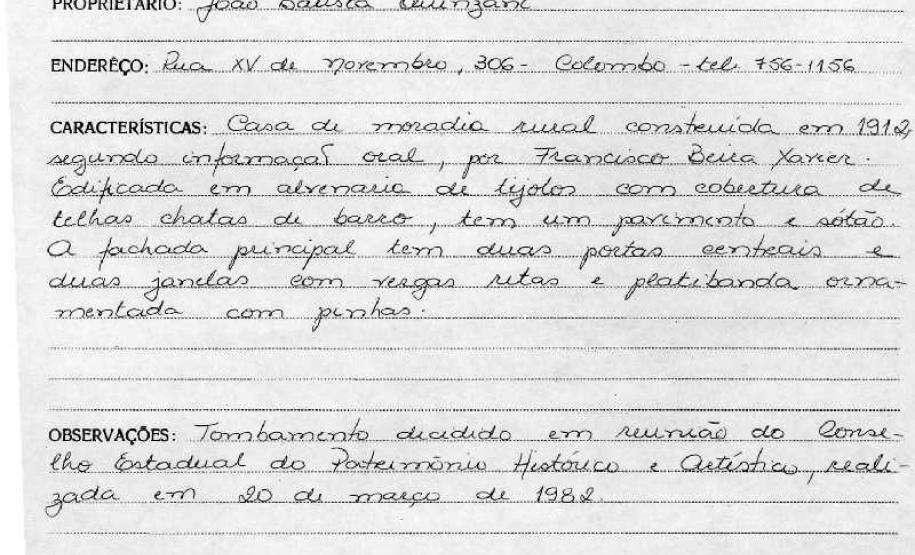 PROPRIETÁRIO: João Batista
ENDERÊÇO: Rua XV de Novembro, 306 - Colombo - tel. 756-1156
CARACTERÍSTICAS: Casa de moradia rural construída em 1912,
segundo informação oral, por Francisco Beira Xavier.
Edificada em alvenaria de tijolos com cobertura de
telhas chatas de barro, tem um pavimento e sótão.
A fachada principal tem duas portas centrais e
duas janelas com vergas retas e platibanda orna-
mentada com pinhas.
OBSERVAÇÕES: Tombamento decidido em reunião do Conse-
lho Estadual do Patrimônio Histórico e Artístico, reali-
zada em 20 de março de 1982.